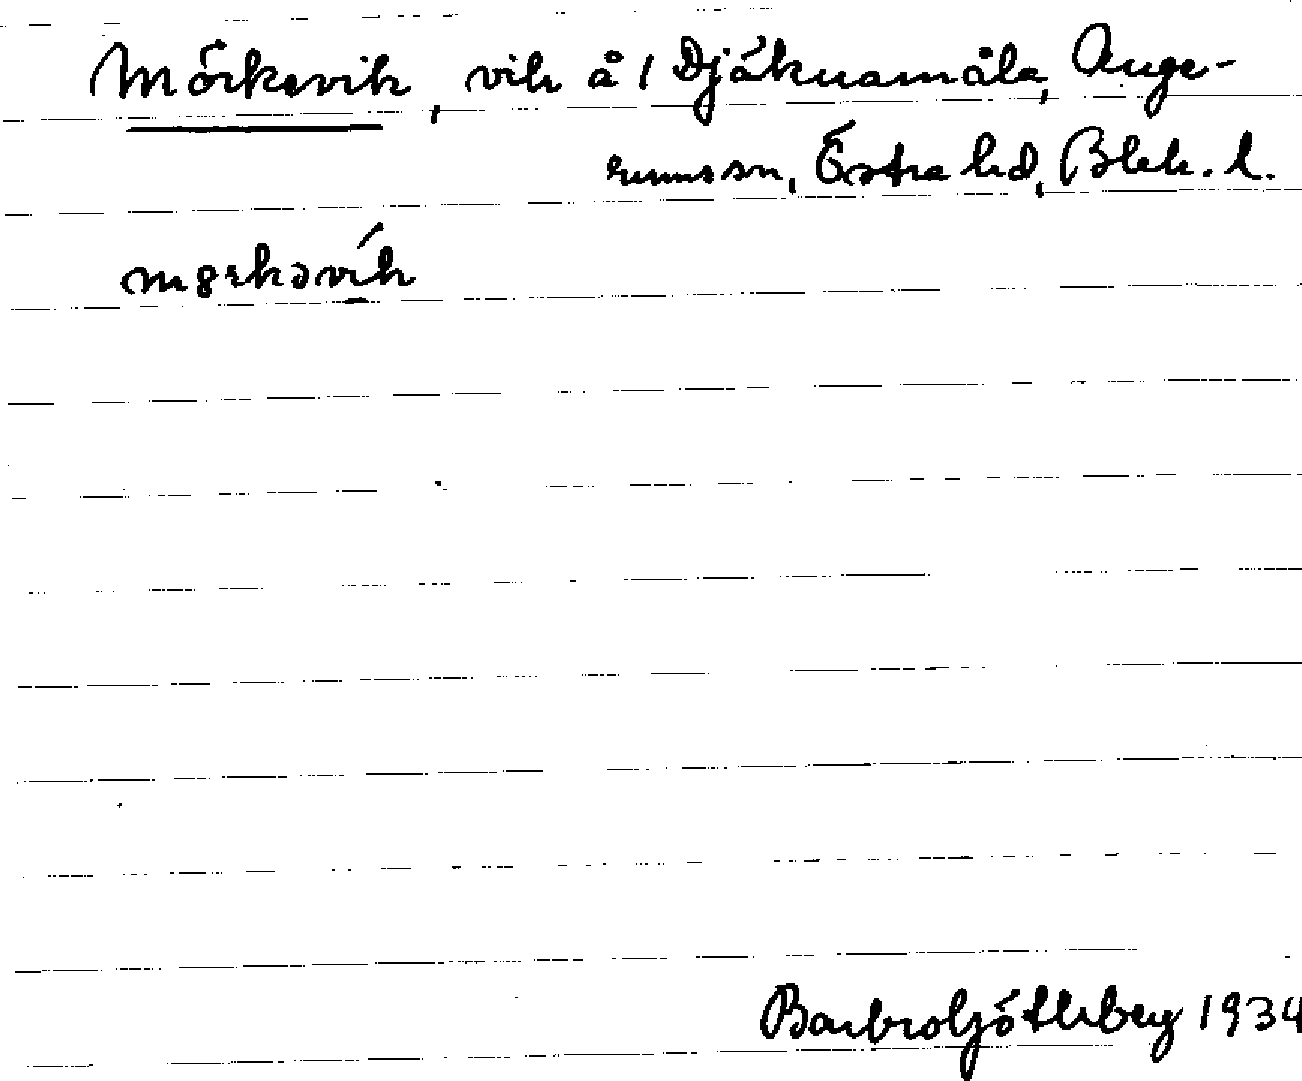 Mörkevik, vik å 1 Djäknamåla, Auge-
rums sn, Östra hd, Blek. l.
mørkəvík
Barbro Götlebey 1934